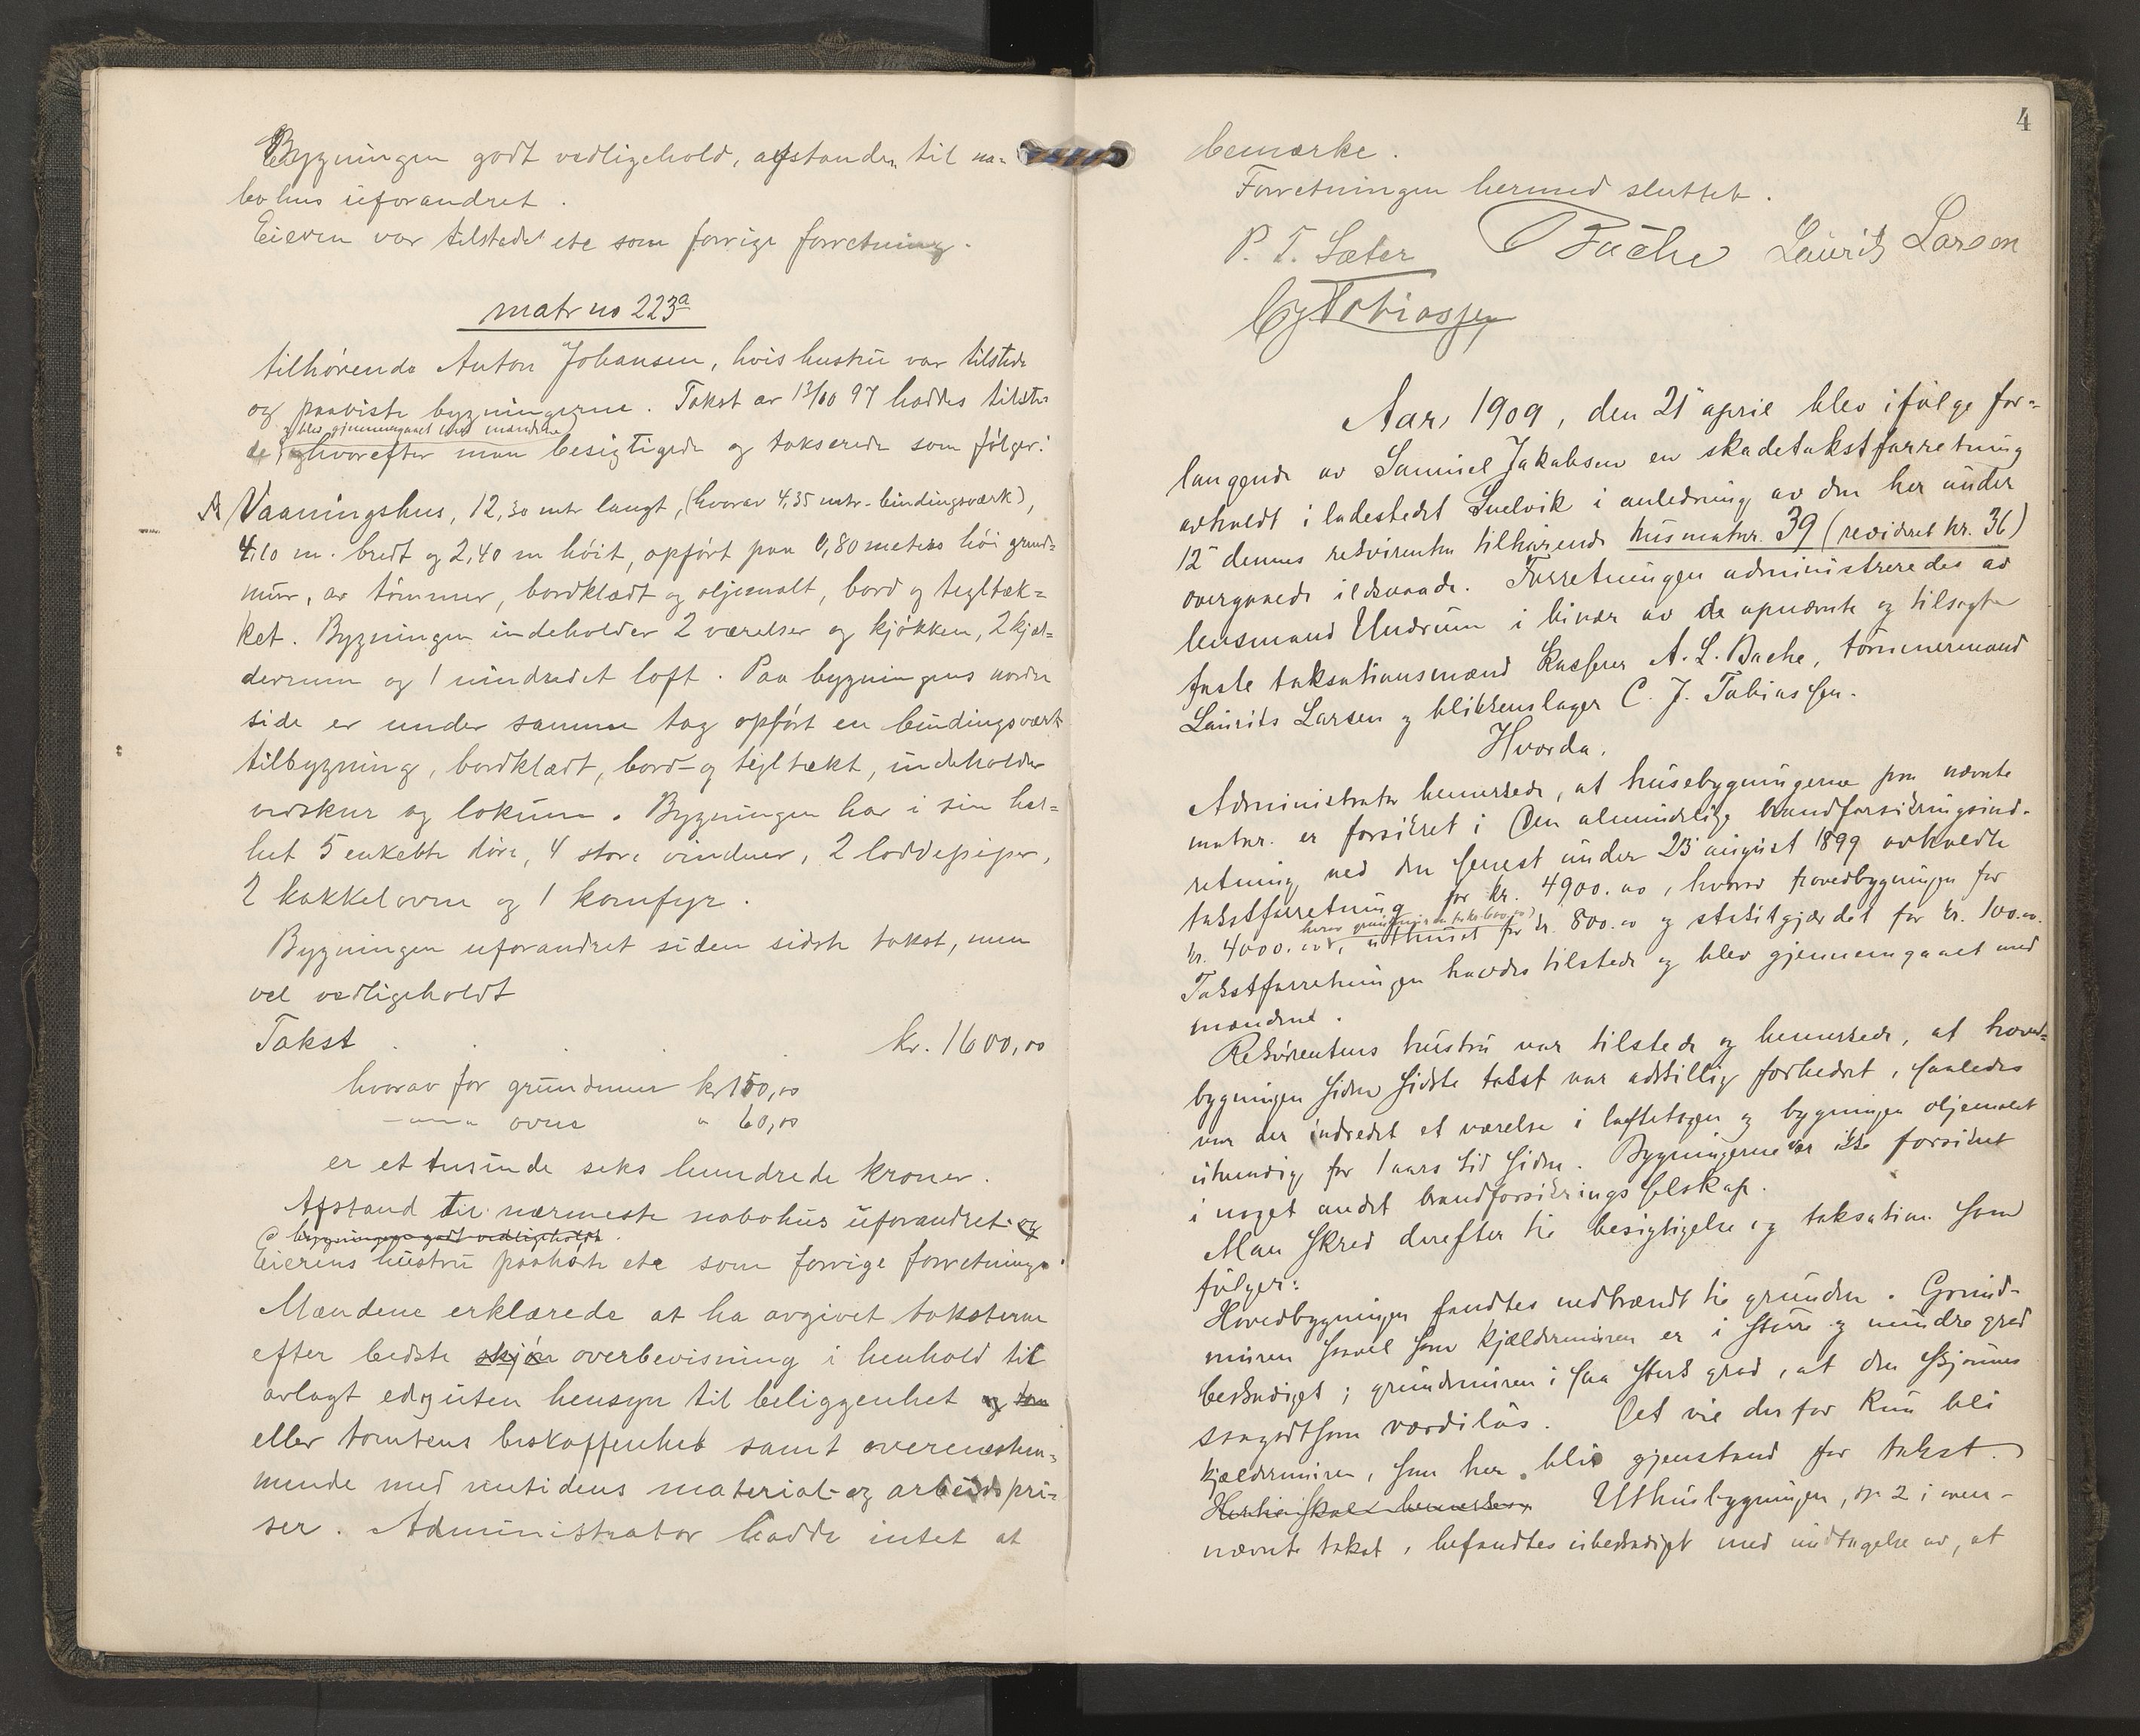 Bygningen godt vedligehold, afstanden til na-
bohus uforandret.
Eieren var tilstede etc som forrige forretning.
matr no 223a
tilhørende Anton Johansen, hvis hustru var tilstede
og paaviste bygningerne. Takst av 13/10 97 haddes tilste-
og blev gjennemgaaet med mændene
de, hvorefter man besigtigede og takserede som følger:
Vaaningshus, 12,30 mtr langt, (hvorav 4,35 mtr. bindingsværk),
4,10 m. bredt og 2,40 m høit, opført paa 0,80 meters høi grund=
mur, av tømmer, bordklædt og oljemalt, bord og tegltæk=
ket. Bygningen indeholder 2 værelser og kjøkken, 2 kjæl=
derrum og 1 uindredet loft. Paa bygningens nordre
side er under samme tag opført en bindingsværk
tilbygning, bordklædt, bord- og tegltækt, indeholder
vedskur og lokum. Bygningen har i sin hel=
het 5 enkelte døre, 4 store vinduer, 2 loddepiper,
2 kakkelovne og 1 komfyr.
Bygningen uforandret siden sidste takst, men
vel vedligeholdt
Takst . . . . kr. 1600,00
hvorav for grundmur kr 150,00
ovne " 60,00
er et tusinde seks hundrede kroner.
Afstand til nærmeste nabohus uforandret. og
bygningen godt vedligeholdt.
Eierens hustru paahørte etc som forrige forretning.
Mændene erklærede at ha avgivet taksterne
efter bedste skjøn overbevisning i henhold til
avlagt ed og uten hensyn til beliggenhet og tom
eller tomtens beskaffenhet samt overensstem=
mende med nutidens material- og arbeidspri=
ser. Administrator hadde intet at
4
bemærke.
Forretningen hermed sluttet.
P. T. Sæter Bache Laurits Larsen
C J Tobiassen
Aar 1909, den 21 april blev ifølge for=
langende av Samuel Jakobsen en skadetakstforretning
avholdt i ladestedet Svelvik i anledning av den her under
12 dennes rekvirenten tilhørende hus matnr. 39 (revideret nr. 36)
overgaaede ildsvaade. Forretningen administreredes av
lensmand Undrum i hivær av de opnævnte og tilsagte
faste taksationsmænd kasserer A. L. Bache, tømmermand
Laurits Larsen og blikkenslager C. J. Tobiassen.
Hvorda.
Administrator bemerkede, at husebygningerne paa nævnte
matnr. er forsikret i Den almindelige brandforsikringsind-
retning ved den senest under 25 august 1899 avholdte
takstforretning for kr. 4900.00, hvorav hovedbygningen for
kr. 4000.00, uthuset for kr. 800.00 og stakitgjærdet for kr. 100.00.
Takstforretningen havdes tilstede og blev gjennemgaaet med
mændene.
Rekvirentens hustru var tilstede og bemerkede, at hoved=
bygningen siden sidste takst var adskillig forbedret, saaledes
var der indredet et værelse i loftetagen og bygningen oljemalt
utvendig for 1 aars tid siden. Bygningerne var ikke forsikret
i noget andet brandforsikringsselskap.
Man skred derefter til besigtigelse og taksation som
følger:
Hovedbygningen fandtes nedbrændt til grunden. Grund-
muren saavel som kjældermuren er i større og mindre grad
beskadiget; grundmuren i saa sterk grad, at den skjønnes
saagodtsom værdiløs. Det vil derfor kun bli
kjældermuren, som her blir gjenstand for takst.
Uthusbygningen, nr 2 i oven-
nævnte takst, befandtes ubeskadiget med undtagelse av, at